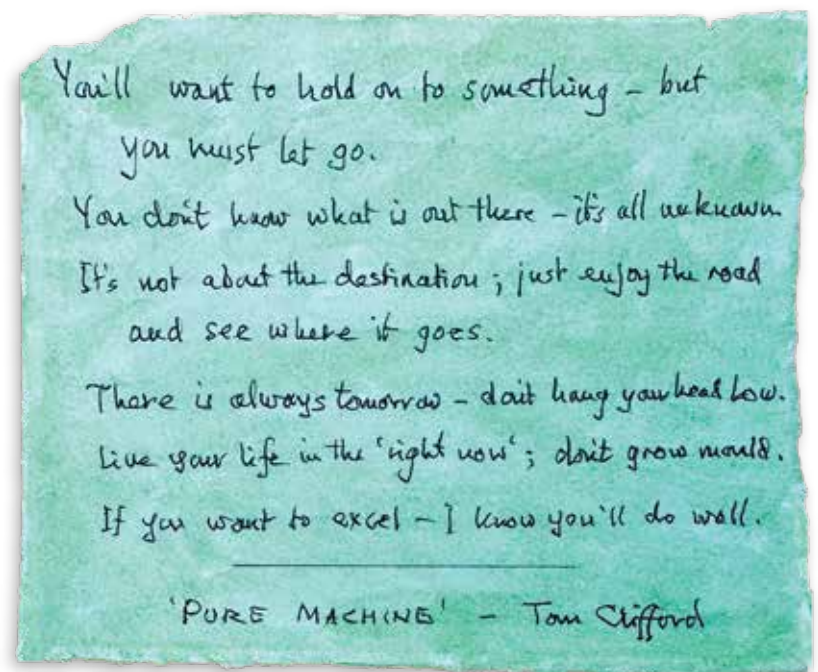 You'll want to hold on to something - but
you must let go.
You don't know what is out there - it's all unknown.
It's not about the destination; just enjoy the road
and see where it goes.
There is always tomorrow - don't hang your head low.
Live your life in the 'right now'; don't grow mould.
If you want to excel - I know you'll do well.
'PURE MACHINE' - Tom Clifford